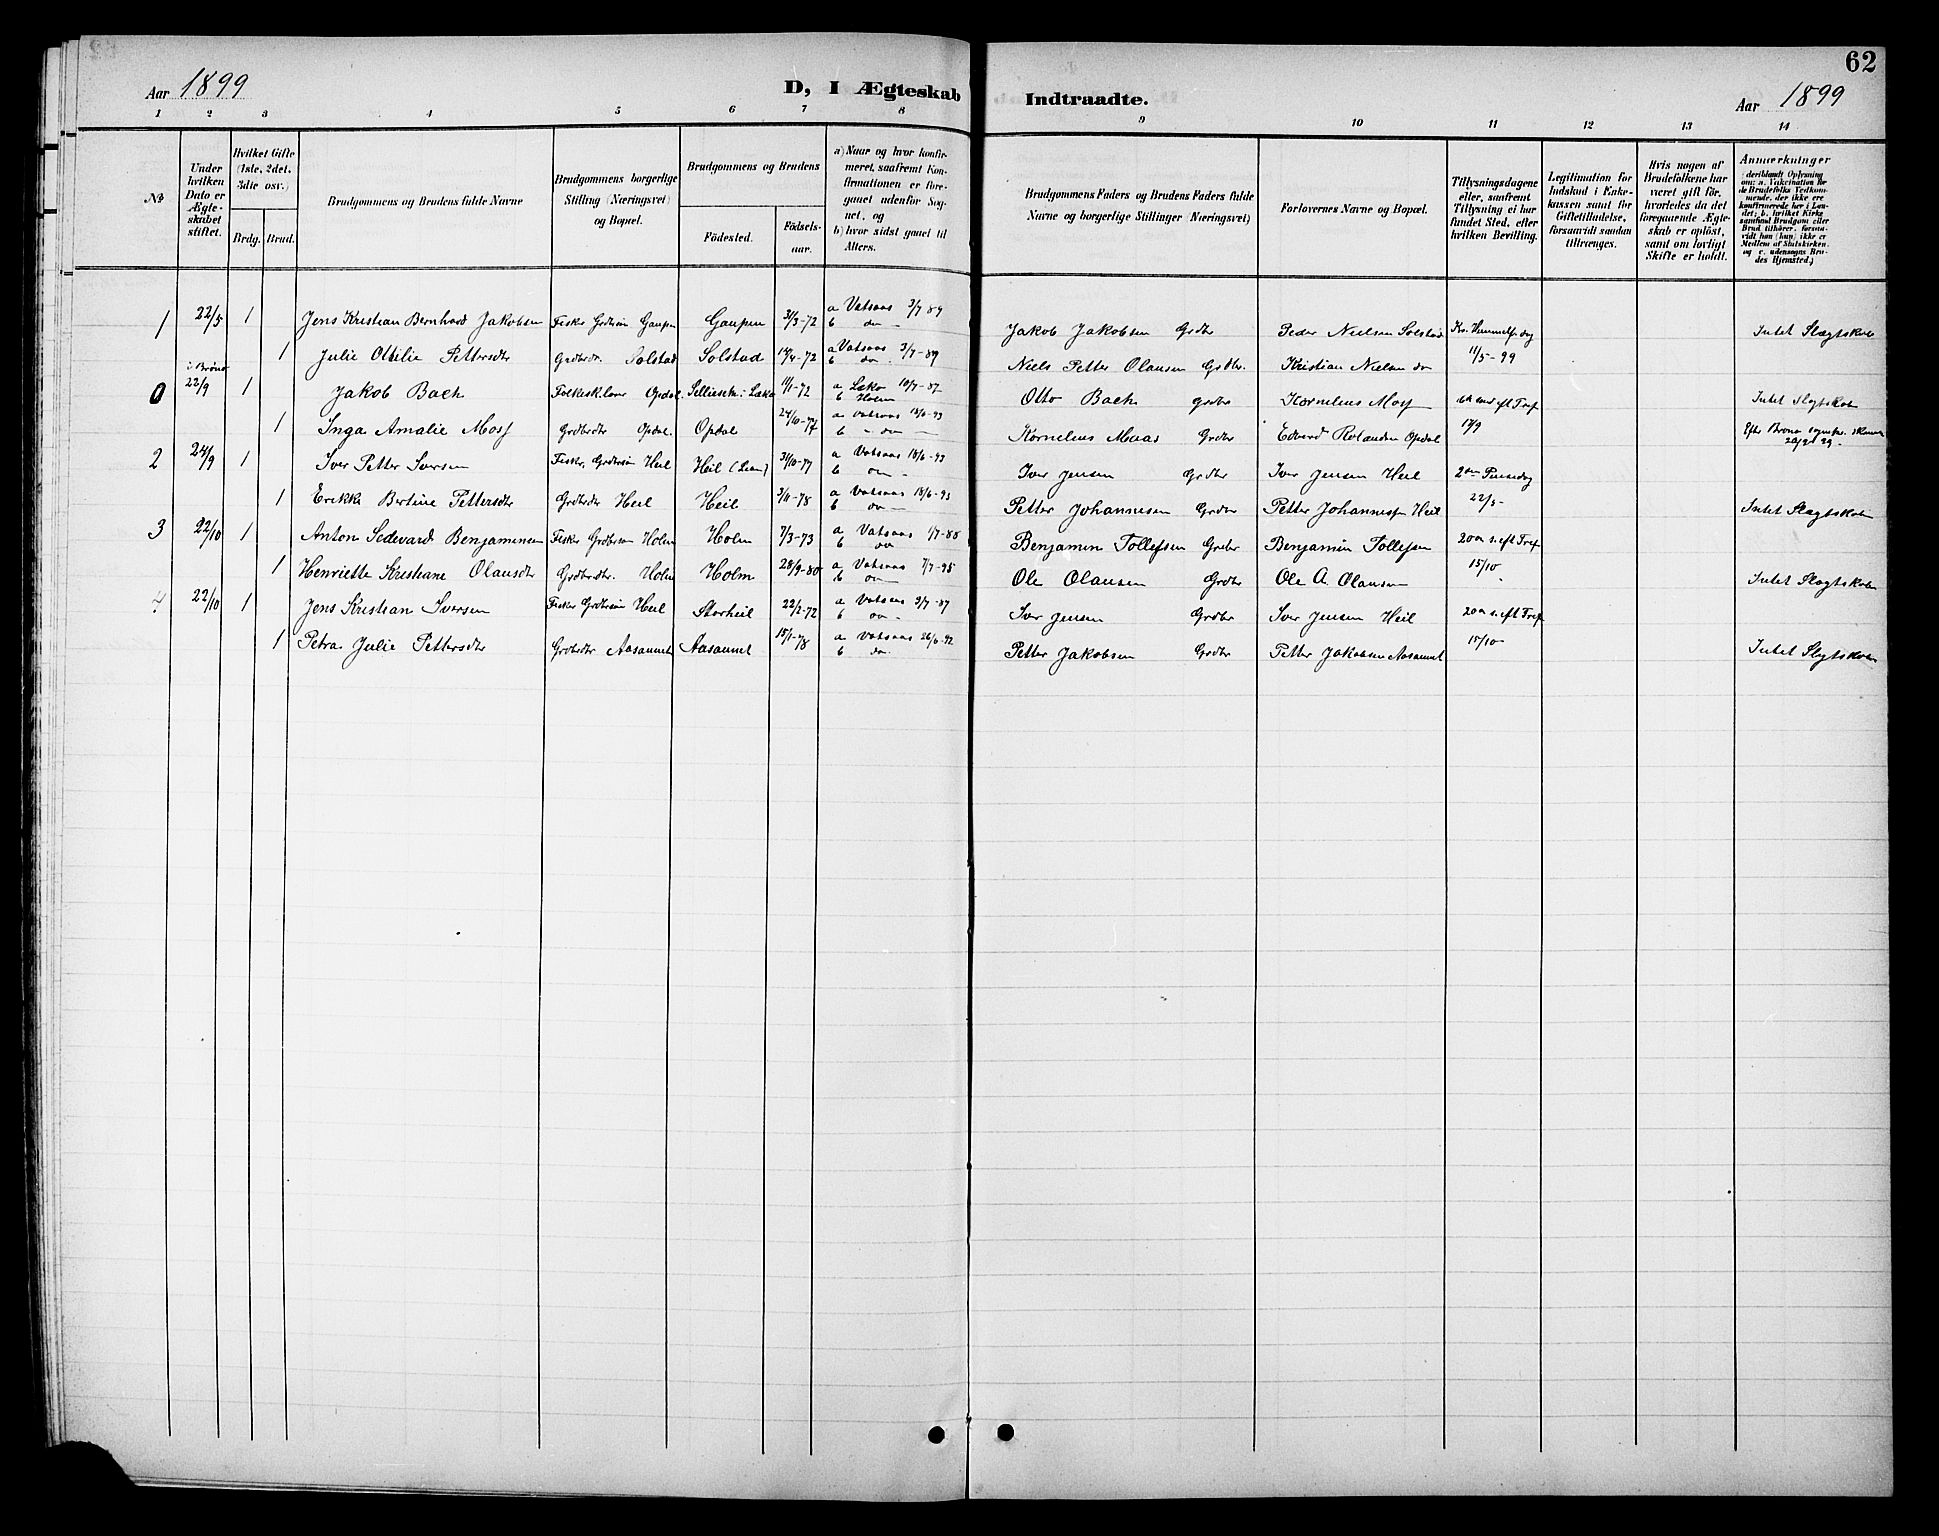 62
Aar 1899
D, I Ægteskab Indtraadte.
Aar 1899
1 2 3 4 5 6 7 8 9 10 11 12 13 14
№
Under hvilken Dato er Ægteskabet stiftet.
Hvilket Gifte (1ste, 2det, 3die osv.)
Brdg. Brud.
Brudgommens og Brudens fulde Navne
Brudgommens borgerlige Stilling (Næringsvei) og Bopæl.
Brudgommens og Brudens
Födested. Födselsaar.
a) Naar og hvor konfirmeret, saafremt Konfirmationen er foregaaet udenfor Sognet, og
b) hvor sidst gaaet til Alters.
Brudgommens Faders og Brudens Faders fulde Navne og borgerlige Stillinger (Næringsvei)
Forlovernes Navne og Bopæl.
Tillysningsdagene eller, saafremt Tillysning ei har fundet Sted, efter hvilken Bevilling.
Legitimation for Indskud i Enkekassen samt for Giftetilladelse, forsaavidt saadan tiltrænges.
Hvis nogen af Brudefolkene har været gift för, hvorledes da det foregaaende Ægteskab er oplöst, samt om lovligt Skifte er holdt.
Anmerkninger (deriblandt Oplysning om: a. Vakcination for de Brudefolks Vedkommende, der ikke ere konfirmerede her i Landet; b. hvilket Kirkesamfund Brudgom eller Brud tilhörer, forsaavidt han (hun) ikke er Medlem af Statskirken, og c. udensogns Brudes Hjemsted.)
1 22/5 1 Jens Kristian Bernhard Jakobsen Fisker Grdbrsøn Gaupen Gaupen 31/3-72 a Vatsaas 3/7 89 b do - Jakob Jakobsen Grdbr Peder Nielsen Solstad Kr. Himmelf. dag Intet Slægtskab
1 Julie Ottilie Pettersdtr Grdbrdr. Solstad Solstad 14/4-72 a Vatsaas 3/7-89 b do - Niels Petter Olausen Grdbr. Kristian Nielsen do 11/5-99
i Brønø
0 22/9 1 Jakob Bach Folkeskolelærer Opdal 11/1-72 a Leko 10/7-87 b Holm Otto Bach grdbr Kornelius Mosf Intet Slægtskab
1 Inga Amalie Mosf Grdbrdtr Opdal. Opdal 24/10-77 a Vatsaas 18/6-93 b - do - Kornelius Maas Grdbr Edvard Rolandsen Opdal 17/9 Efter Brønø
2 24/9 1 Iver Petter Iversen Fisker, Grdbrsøn Heil Heil 31/10-77 a Vatsaas 18/6-93 b do - Iver Jensen Grdbr Iver Jensen Heil 2den Pinsedag
1 Erikka Bertine Pettersdtr Grdbrdtr Heil Heil 3/11-78 a Vatsaas 18/6-93 b do - Petter Johannesen Grdbr Petter Johannesen Heil 22/5- Intet Slægtskab
3 22/10 1 Anton Sedevard Benjaminsen Fisker Grdbrsøn Holm Holm 7/3-73 a Vatsaas 1/7-88 b do Benjamin Tollefsen Grdbr Benjamin Tollefsen 20de s. eft Tref
1 Henriette Kristiane Olausdtr Grdbrdtr. Holm Holm 28/9-80 a Vatsaas 7/7-95 b do - Ole Olausen Grdbr Ole A. Olausen 15/10 Intet Slægtskab
4 22/10 1 Jens Kristian Iversen Fisker Grdbrsøn Heil Storheil 22/2-72 a Vatsaas 3/7-87 b do - Iver Jensen Grdbr Iver Jensen Heil 20de s. eft Tref
1 Petra Julie Pettersdtr Grdbrdtr Aasaunet Aasaunet 15/1-78 a Vatsaas 26/6-92 b do. Petter Jakobsen Grdbr Petter Jakobsen Aasaunet 15/10 Intet Slægtskab